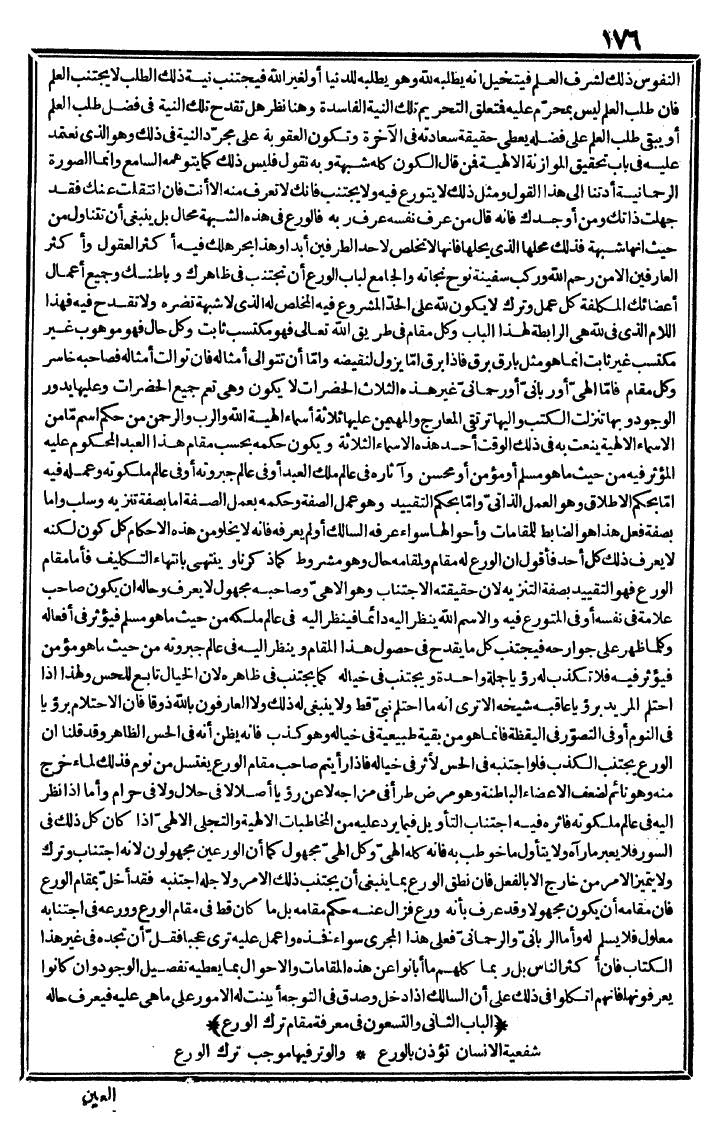 ١٧٦
النفوس ذلك لشرف العلم فيتخيل انه يطلبه لله وهو يطلبه للدنيا أو لغير الله فيجتنب نية ذلك الطلب لا يجتنب العلم
فان طلب العلم ليس بمحرّم عليه فتعلق التحريم تلك النية الفاسدة وهنا نظر هل تقدح تلك النية فى فضل طلب العلم
أو يبقى طلب العلم على فضله يعطى حقيقة سعادته فى الآخرة وتكون العقوبة على مجرّد النية فى ذلك وهو الذى نعتمد
عليه فى باب تحقيق الموازنة الالهية فمن قال الكون كله شبهة وبه نقول فليس ذلك كما يتوهمه السامع وانما الصورة
الرحمانية أدتنا الى هذا القول ومثل ذلك لا يتورع فيه ولا يجتنب فانك لا تعرف منه الا أنت فان انتقلت عنك فقد
جهلت ذاتك ومن أوجدك فانه قال من عرف نفسه عرف ربه فالورع فى هذه الشبهة محال بل ينبغى أن تتناول من
حيث انها شبهة فذلك محلها الذى يحلها فانها لا تخلص لاحد الطرفين أبدا وهذا بحر هلك فيه أكثر العقول وأكثر
العارفين الا من رحم الله وركب سفينة نوح نجاته والجامع لباب الورع أن تجتنب فى ظاهرك وباطنك وجميع أعمال
أعضائك المكلفة كل عمل وترك لا يكون لله على الحدّ المشروع فيه المخلص له الذى لا شبهة تضره ولا تقدح فيه فهذا
اللام الذى فى لله هى الرابطة لهذا الباب وكل مقام فى طريق الله تعالى فهو مكتسب ثابت وكل حال فهو موهوب غير
مكتسب غير ثابت انما هو مثل بارق برق فاذا برق امّا يزول لنقيضه وامّا أن تتوالى أمثاله فان توالت أمثاله فصاحبه خاسر
وكل مقام فامّا الهىّ أو ربانىّ أو رحمانىّ غير هذه الثلاث الحضرات لا يكون وهى تعم جميع الحضرات وعليها يدور
الوجود وبها تنزلت الكتب واليها ترتقى المعارج والمهيمن عليها ثلاثة أسماء الهية الله والرب والرحمن من حكم اسم مّا من
الاسماء الالهية ينعت به فى ذلك الوقت أحد هذه الاسماء الثلاثة ويكون حكمه بحسب مقام هذا العبد المحكوم عليه
المؤثر فيه من حيث ما هو مسلم أو مؤمن أو محسن وآثاره فى عالم ملك العبد أو فى عالم جبروته أو فى عالم ملكوته وعمله فيه
امّا بحكم الاطلاق وهو العمل الذاتىّ وامّا بحكم التقييد وهو عمل الصفة وحكمه بعمل الصفة اما بصفة تنزيه وسلب واما
بصفة فعل هذا هو الضابط للمقامات وأحوالها سواء عرفه السالك أو لم يعرفه فانه لا يخلو من هذه الاحكام كل كون لكنه
لا يعرف ذلك كل أحد فأقول ان الورع له مقام ولمقامه حال وهو مشروط كما ذكرناه وينتهى بانتهاء التكليف فأما مقام
الورع فهو التقييد بصفة التنزيه لان حقيقته الاجتناب وهو الهىّ وصاحبه مجهول لا يعرف وحاله ان يكون صاحب
علامة فى نفسه أو فى المتورع فيه والاسم الله ينظر اليه دائما فينظر اليه فى عالم ملكه من حيث ما هو مسلم فيؤثر فى أفعاله
وكلما ظهر على جوارحه فيجتنب كل ما يقدح فى حصول هذا المقام وينظر اليه فى عالم جبروته من حيث ما هو مؤمن
فيؤثر فيه فلا تكذب له رؤيا جلة واحدة ويجتنب فى خياله كما يجتنب فى ظاهره لان الخيال تابع للحس ولهذا اذا
احتلم المريد برؤيا عاقبه شيخه ألا ترى انه ما احتلم نبىّ قط ولا ينبغى له ذلك ولا العارفون بالله ذوقا فان الاحتلام برؤيا
فى النوم أو فى التصوّر فى اليقظة فانما هو من بقية طبيعية فى خياله وهو كذب فانه يظن أنه فى الحس الظاهر وقد قلنا ان
الورع يجتنب الكذب فلو اجتنبه فى الحس لأثر فى خياله فاذا رأيتم صاحب مقام الورع يغتسل من نوم فذلك لماء خرج
منه وهو نائم لضعف الاعضاء الباطنة وهو مرض طرأ فى مزاجه لا عن رؤيا أصلا لا فى حلال ولا فى حرام وأما اذا نظر
اليه فى عالم ملكوته فاثره فيه اجتناب التأويل فيما يرد عليه من المخاطبات الالهية والتجلى الالهىّ اذا كان كل ذلك فى
السور فلا يعبر ما رآه ولا يتأول ما خوطب به فانه كله الهىّ وكل الهىّ مجهول كما أن الورعين مجهولون لانه اجتناب وترك
ولا يتميز الامر من خارج الا بالفعل فان نطق الورع بما ينبغى أن يجتنب ذلك الامر ولاجله اجتنبه فقد أخلّ بمقام الورع
فان مقامه أن يكون مجهولا وقد عرف بأنه ورع فزال عنه حكم مقامه بل ما كان قط فى مقام الورع وورعه فى اجتنابه
معلول فلا يسلم له وأما الربانىّ والرحمانىّ فعلى هذا المجرى سواء فخذه واعمل عليه ترى عجبا فقلّ أن تجده فى غير هذا
الكتاب فان أكثر الناس بل ربما كلهم ما أبانوا عن هذه المقامات والاحوال بما يعطيه تفصيل الوجود وان كانوا
يعرفونها فانهم اتكلوا فى ذلك على أن السالك اذا دخل وصدق فى التوجه أبينت له الامور على ما هى عليه فيعرف حاله
﴿الباب الثانى والتسعون فى معرفة مقام ترك الورع﴾
شفعية الانسان تؤذن بالورع * والوتر فيها موجب ترك الورع
العين